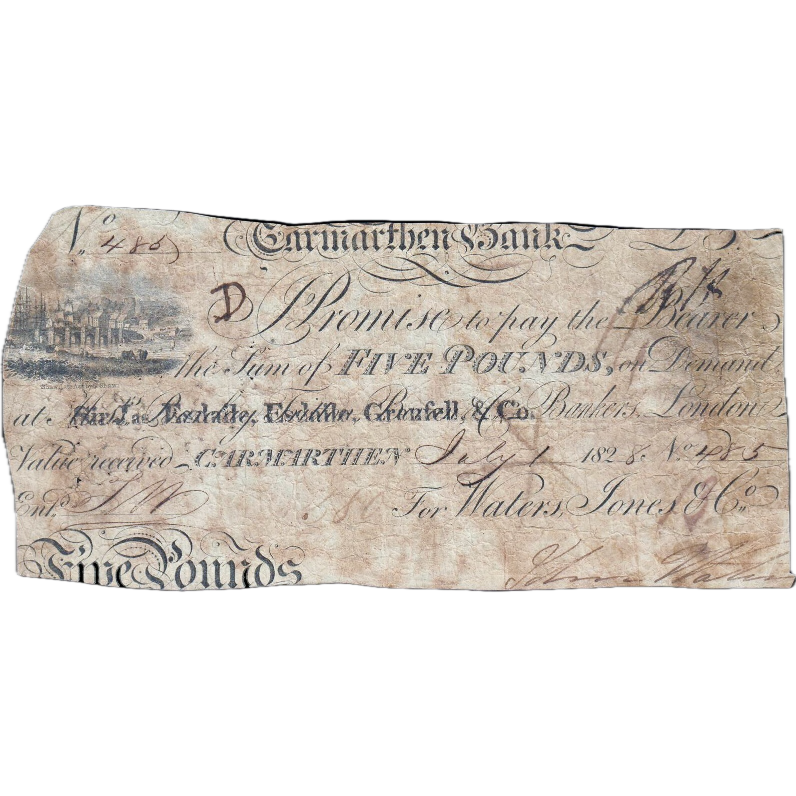 No. 485
Carmarthen Bank
D I Promise to pay the Bearer
the Sum of FIVE POUNDS, on Demand
at Sir Jas. Esdaile, Esdaile, Grenfell, & Co. Bankers, London
Value received CARMARTHEN July 1 1828 No. 485
Entd.
For Waters, Jones, & Co.
Five Pounds
John